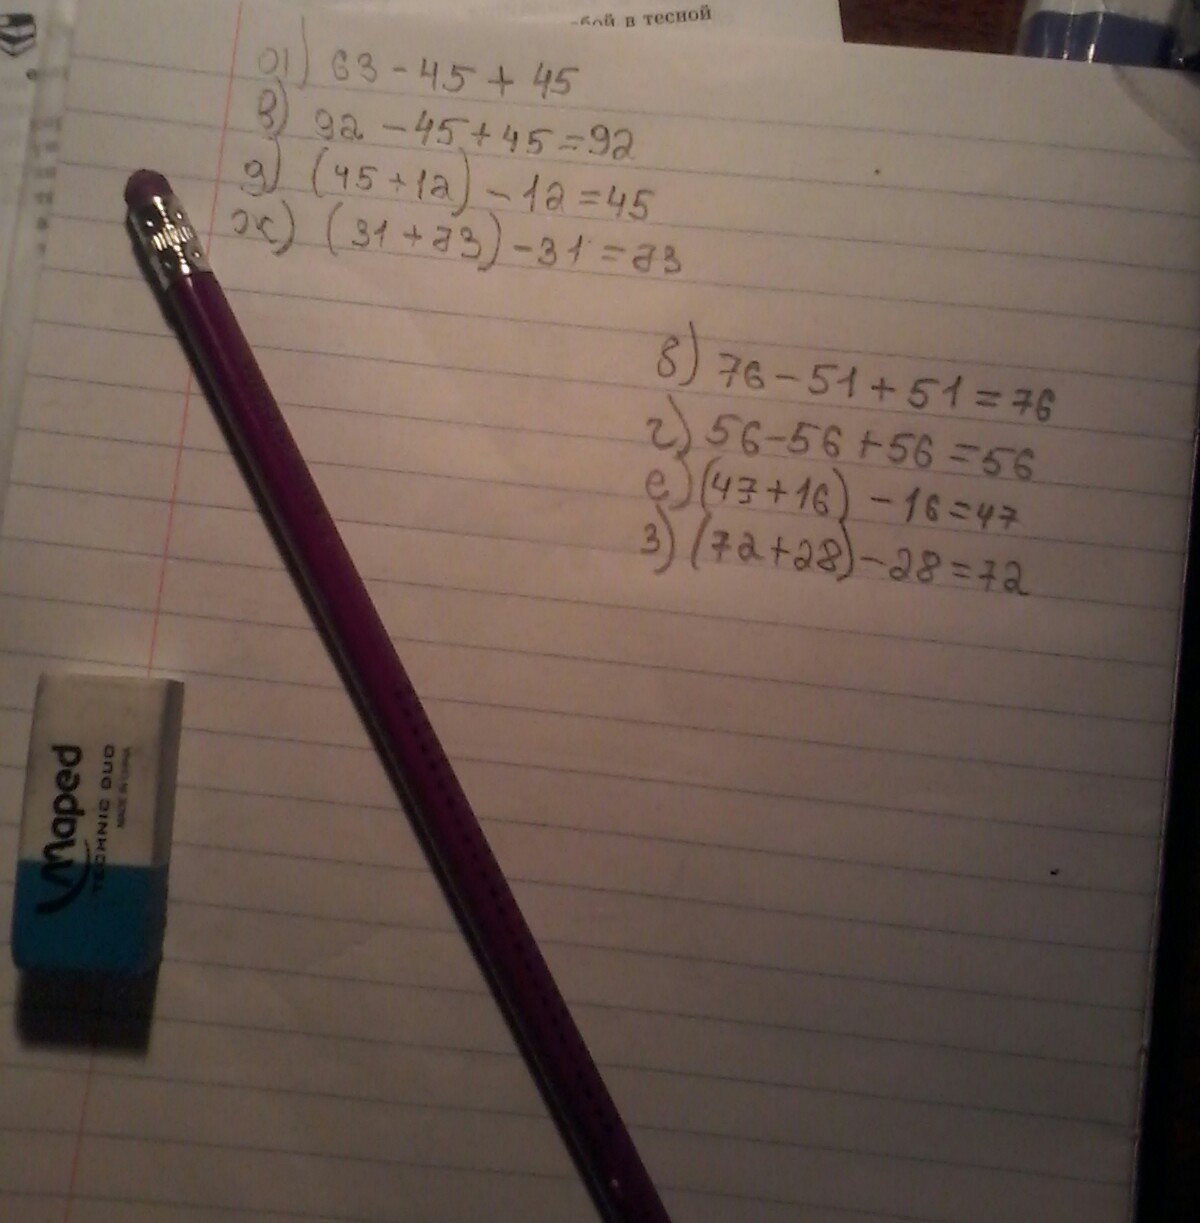 -бой в тесной
а) 63 - 45 + 45
в) 92 - 45 + 45 = 92
д) (45 + 12) - 12 = 45
ж) (31 + 73) - 31 = 73
б) 76 - 51 + 51 = 76
г) 56 - 56 + 56 = 56
е) (47 + 16) - 16 = 47
з) (72 + 28) - 28 = 72
Maped
TECHNIC DUO
MADE IN CHINA